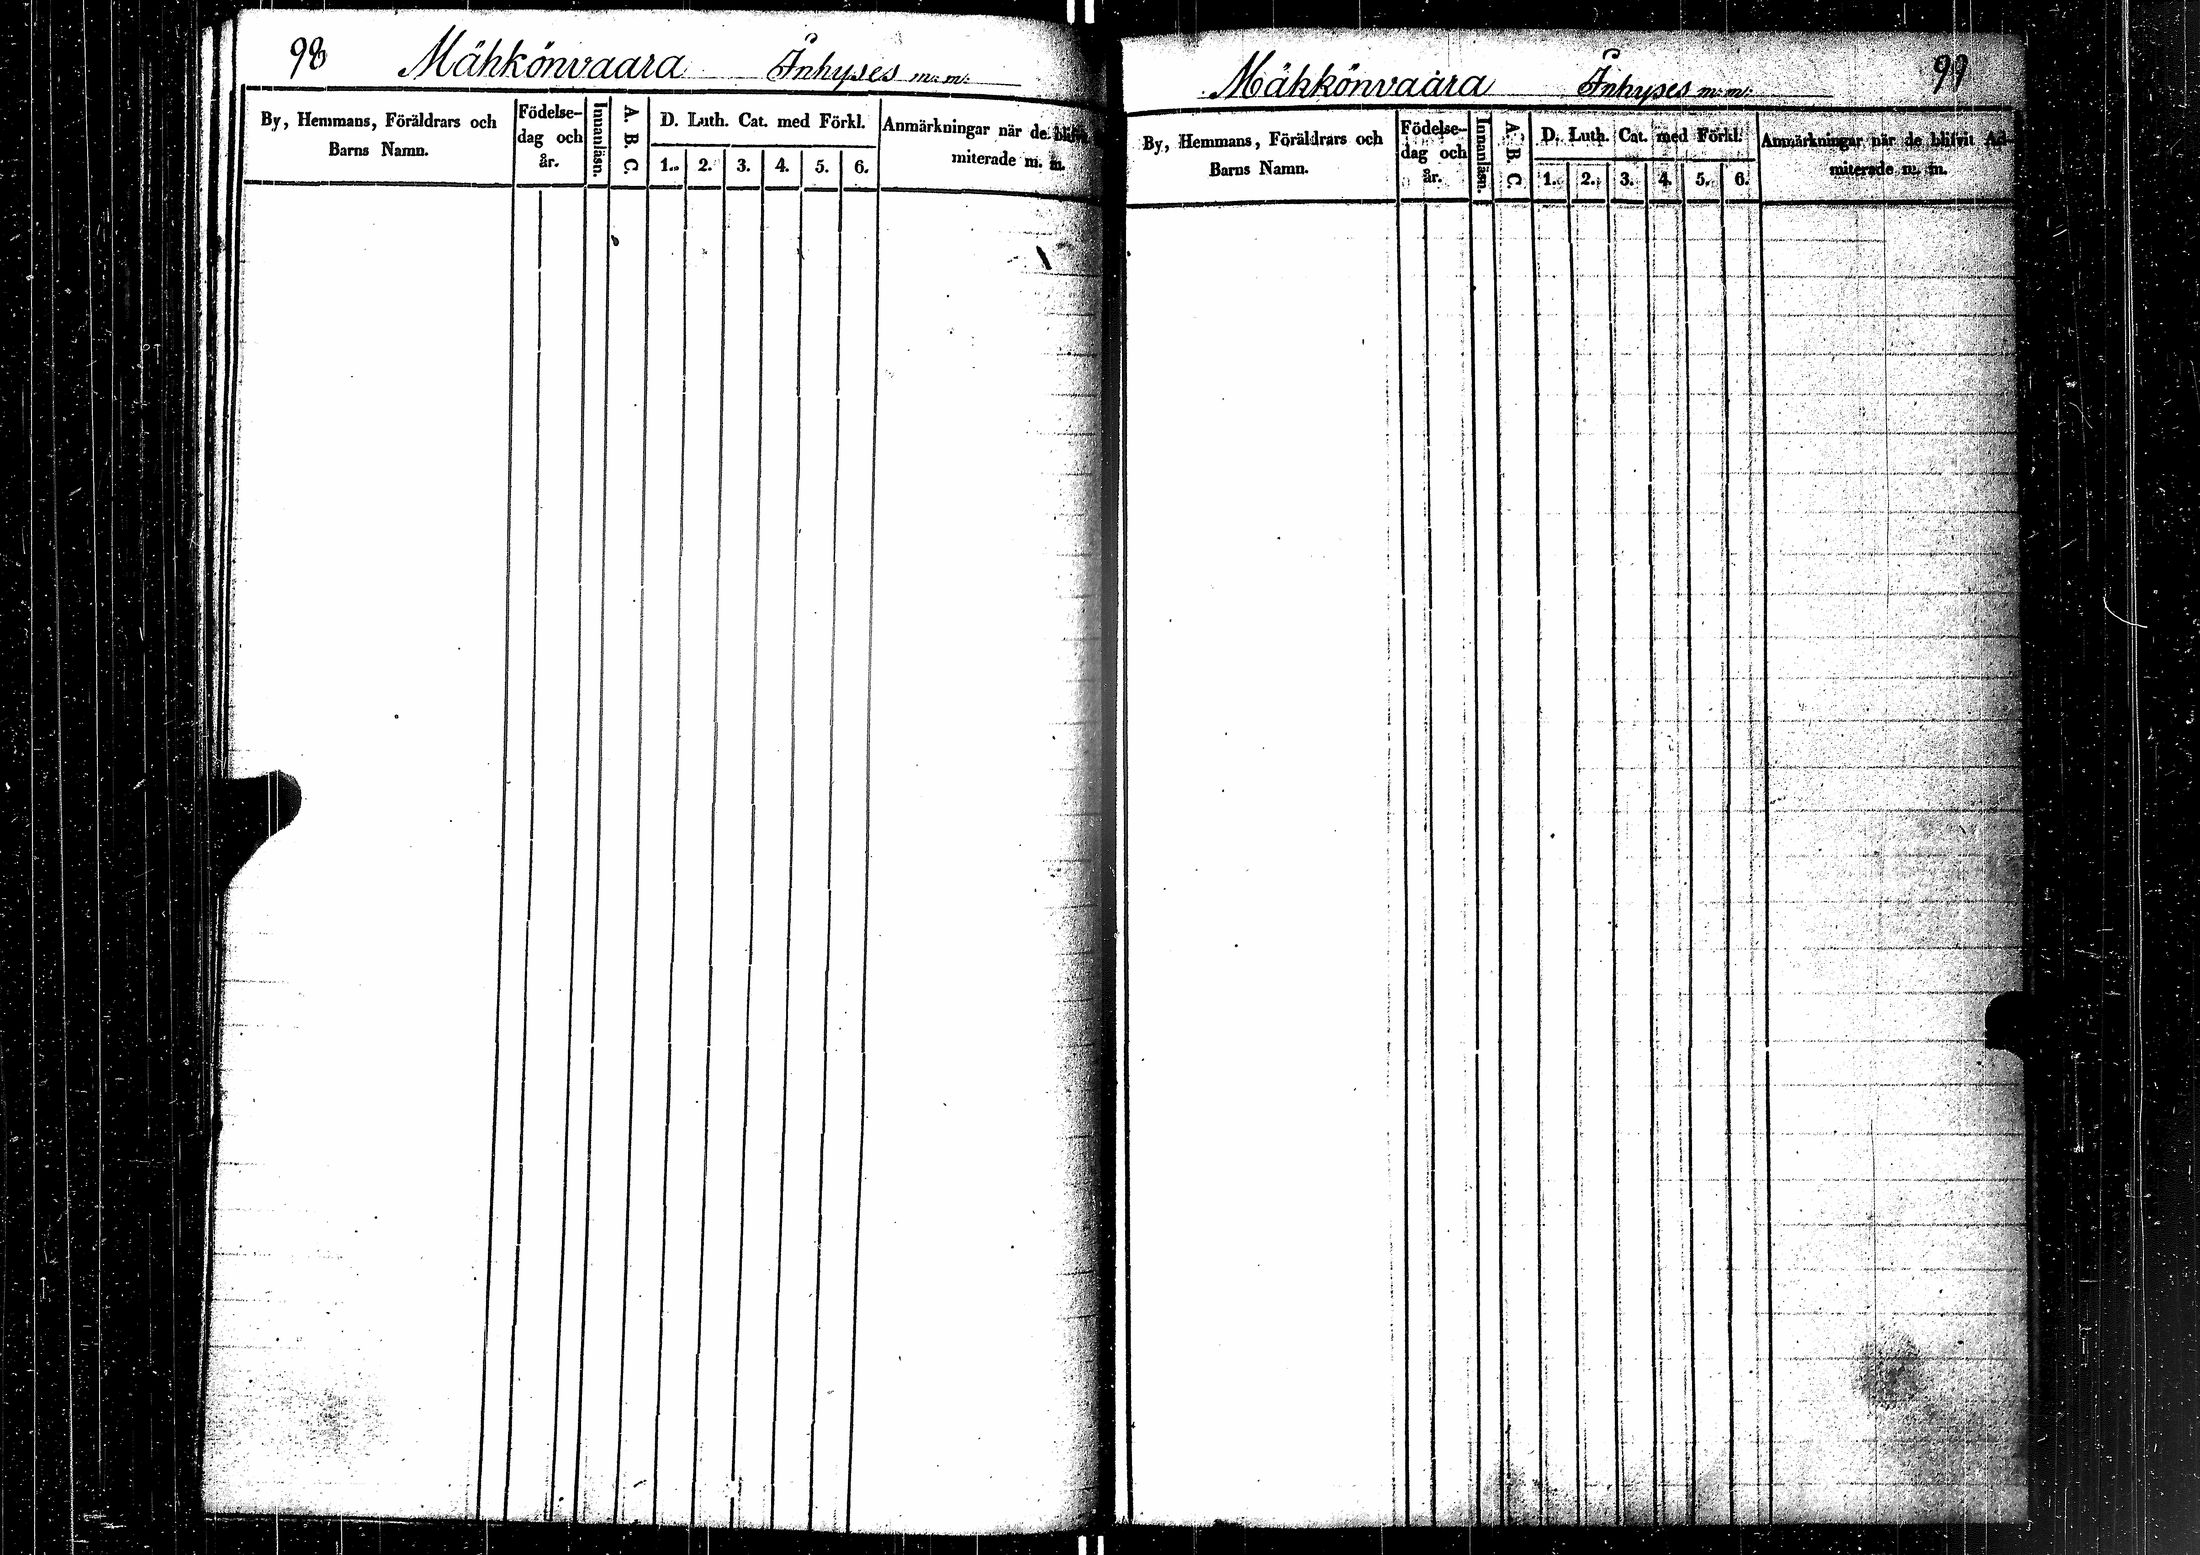 98 Mähkönvaara Inhyses m. m.
By, Hemmans, Föräldrars och
Barns Namn.
Födelse-
dag och
år.
Innanläsn.
A. B. C.
D. Luth. Cat. med Förkl.
1. 2. 3. 4. 5. 6.
Anmärkningar när de blifvit
miterade m. m.
Mähkönvaara Inhyses m. m. 99
By, Hemmans, Föräldrars och
Barns Namn.
Födelse-
dag och
år.
Innanläsn.
A. B. C
D. Luth. Cat. med Förkl.
1. 2. 3. 4. 5. 6.
Anmärkningar när de blifvit Ad-
miterade m. m.